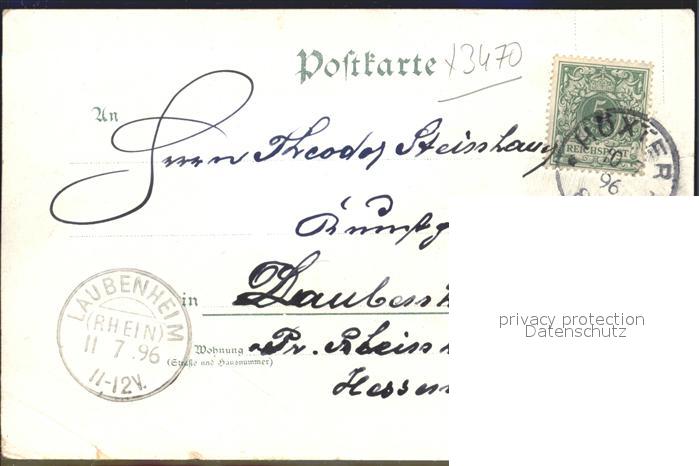 Postkarte x3470
An
5
REICHSPOST
HÖXTER
10
96
Herrn Theodor
Kunstg
in Laubenh
LAUBENHEIM
(RHEIN)
11 7. 96
11-12V.
Wohnung Pr. Rheinh
(Straße und Hausnummer)
Hessen
privacy protection
Datenschutz